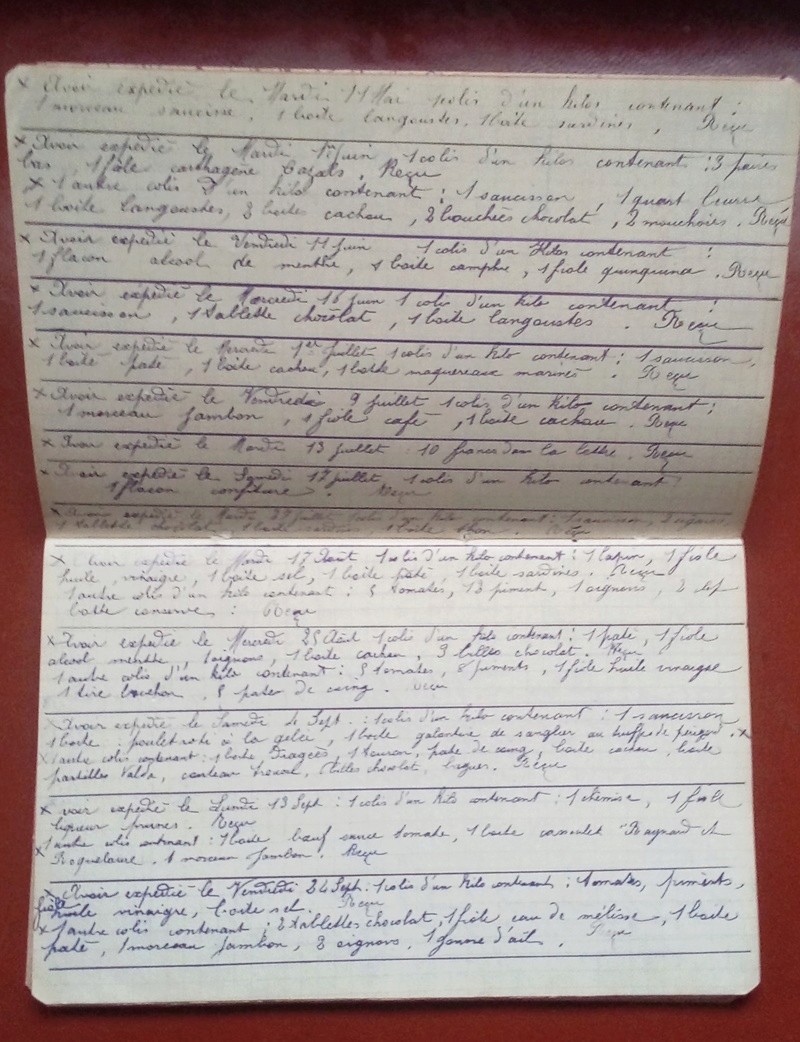 x Avoir expedié le Mardi 11 Mai 1 colis d'un kilos contenant :
1 morceau saucisse, 1 boite langoustes, 1 boite sardines, Reçu
x Avoir expedié le Mardi 1er juin 1 colis d'un kilos contenant : 3 paires
bas, 1 fiole carthagene Cazals, Reçu
x 1 autre colis d'un kilo contenant : 1 saucisson, 1 quart beurre,
1 boite langoustes, 2 boites cachou, 2 bouchées chocolat, 2 mouchoirs. Reçu
x Avoir expedié le Vendredi 11 juin 1 colis d'un kilos contenant :
1 flacon alcool de menthe, 1 boite camphre, 1 fiole quinquina. Reçu
x Avoir expedié le Mercredi 16 juin 1 colis d'un kilo contenant :
1 saucisson, 1 tablette chocolat, 1 boite langoustes. Reçu
x Avoir expedié le Mercredi 1er juillet 1 colis d'un kilo contenant : 1 saucisson,
1 boite paté, 1 boite cachou, 1 boite maquereaux marinés. Reçu
x Avoir expedié le Vendredi 9 juillet 1 colis d'un kilo contenant :
1 morceau jambon, 1 fiole café, 1 boite cachou. Reçu
x Avoir expedié le Mardi 13 juillet : 10 francs dans la lettre. Reçu
x Avoir expedié le Samedi 17 juillet, 1 colis d'un kilo contenant
1 flacon confiture. Reçu
x Avoir expedié le Mardi 27 juillet 1 colis d'un kilo contenant : 1 saucisson,
1 tablette chocolat, 1 boite sardines, 1 boite thon. Reçu
x Avoir expedié le Mardi 17 Août 1 colis d'un kilo contenant : 1 lapin, 1 fiole
huile, vinaigre, 1 boite sel, 1 boite paté, 1 boite sardines. Reçu
1 autre colis d'un kilo contenant : 5 tomates, 13 piment, 1 oignons, 2
boite conserves : Reçu
x Avoir expedié le Mercredi 25 Août 1 colis d'un kilo contenant : 1 paté, 1 fiole
alcool menthe, 1 oignons, 1 boite cachou, 9 billes chocolat. Reçu
1 autre colis d'un kilo contenant : 5 tomates, 8 piments, 1 fiole huile vinaigre
1 tire bouchon, 5 pates de coing. Reçu
x Avoir expedié le Samedi 4 Sept. : 1 colis d'un kilo contenant : 1 saucisson
1 boite poulet roti à la gelée, 1 boite galantine de sanglier au truffes du perigord. x
x 1 autre colis contenant : 1 boite Dragées, 1 Touron, pate de coing, boite cachou, boite
pastilles Valda, couteau, billes chocolat, bagues. Reçu
x Avoir expedié le Lundi 13 Sept : 1 colis d'un kilo contenant : 1 chemise, 1 fiole
liqueur prunes. Reçu
x 1 autre colis contenant : 1 boite bœuf sauce tomate, 1 boite cassoulet Raynard et
Roquelaure, 1 morceau jambon. Reçu
x Avoir expedié le Vendredi 24 Sept. : 1 colis d'un kilo contenant : tomates, piments,
fiole huile vinaigre, boite sel Reçu
x 1 autre colis contenant : 2 tablettes chocolat, 1 fiole eau de mélisse, 1 boite
paté, 1 morceau jambon, 3 oignons, 1 gousse d'ail. Reçu